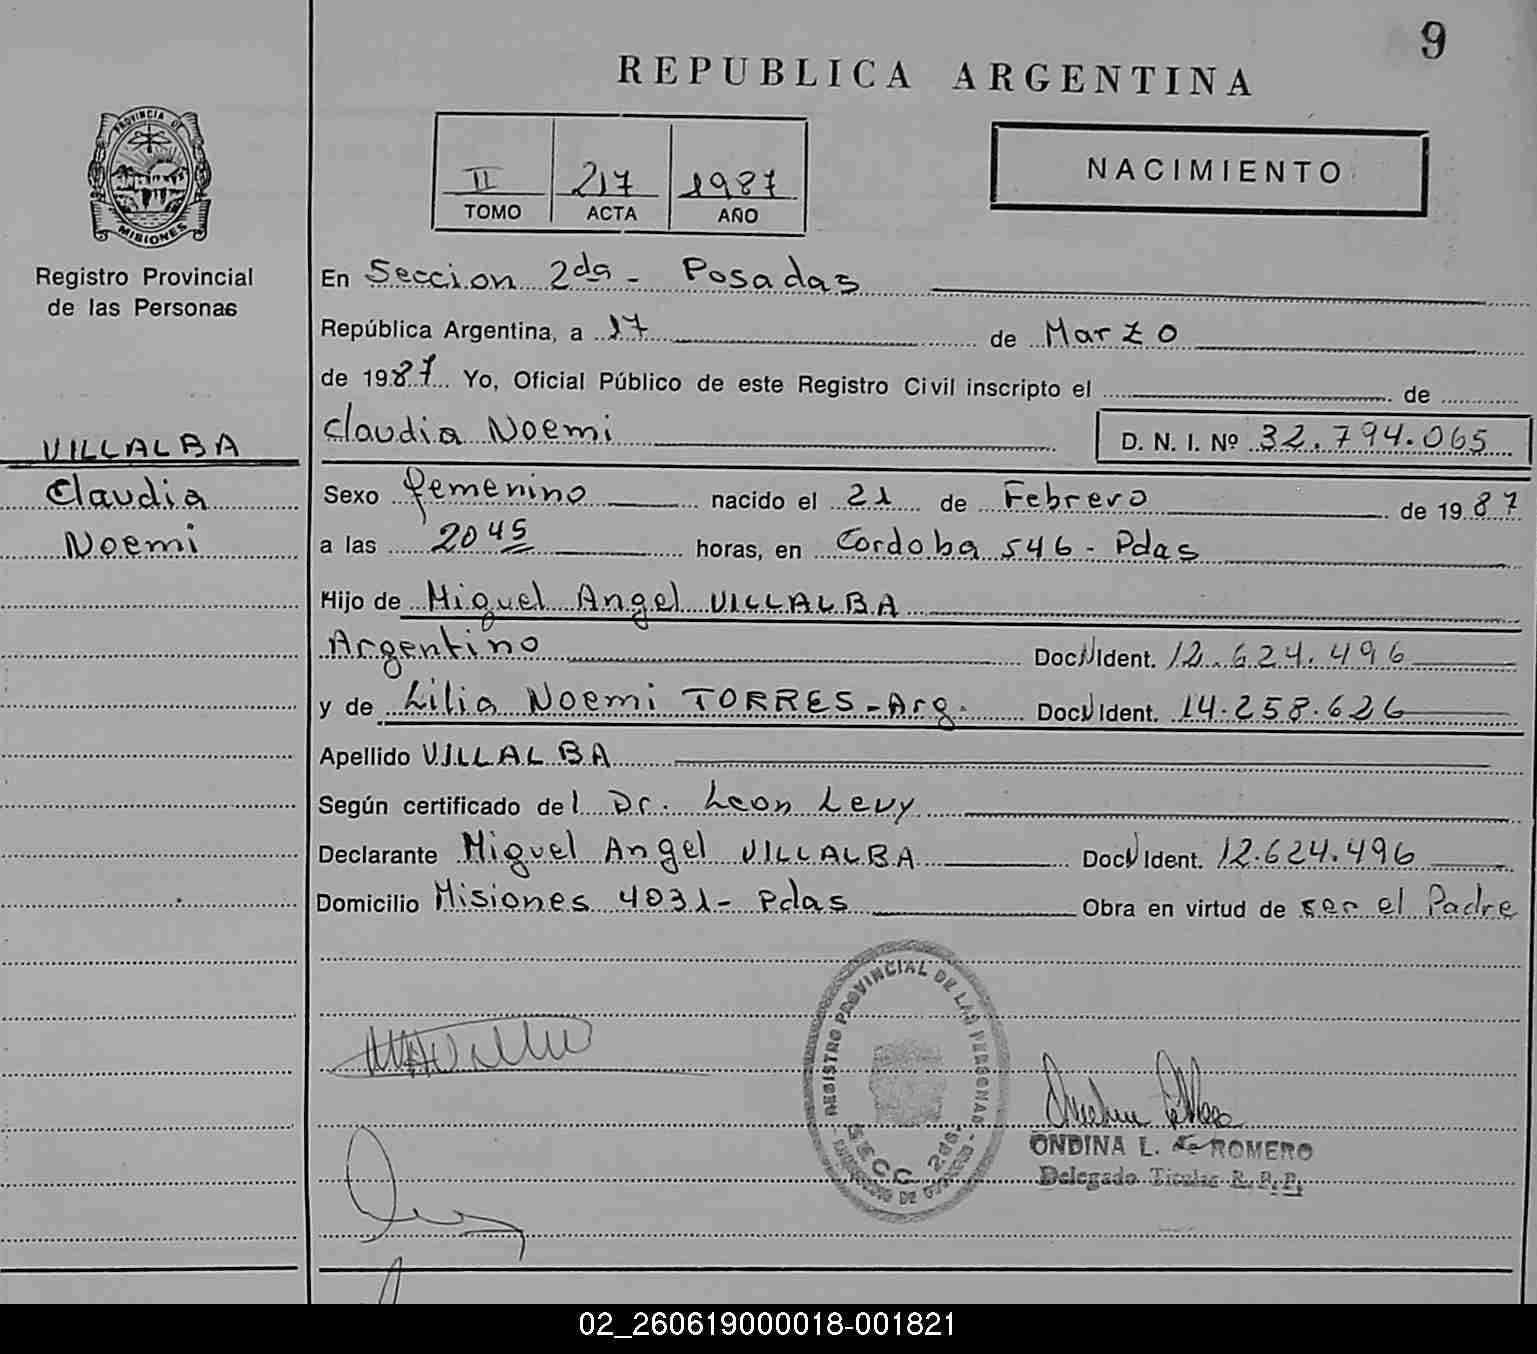 9
REPUBLICA ARGENTINA
PROVINCIA DE
MISIONES
Registro Provincial
de las Personas
II 217 1987
TOMO ACTA AÑO
NACIMIENTO
En Seccion 2da - Posadas
República Argentina, a 17 de Marzo
de 1987 Yo, Oficial Público de este Registro Civil inscripto el de
VILLALBA
Claudia
Noemi
Claudia Noemi D. N. I. Nº 32.794.065
Sexo femenino nacido el 21 de Febrero de 1987
a las 20 45 horas, en Cordoba 546 - Pdas
Hijo de Miguel Angel VILLALBA
Argentino Doc N Ident. 12.624.496
y de Lilia Noemi TORRES - Arg. Doc N Ident. 14.258.626
Apellido VILLALBA
Según certificado del Dr. Leon Levy
Declarante Miguel Angel VILLALBA Doc N Ident. 12.624.496
Domicilio Misiones 4031 - Pdas Obra en virtud de ser el Padre
REGISTRO PROVINCIAL DE LAS PERSONAS
SECC. 2da.
ONDINA L. de ROMERO
Delegado Titular R. P. P.
02_260619000018-001821